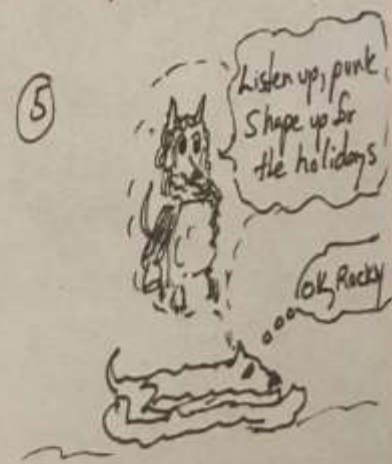 5
Listen up, punk
Shape up for
the holidays
OK, Rocky